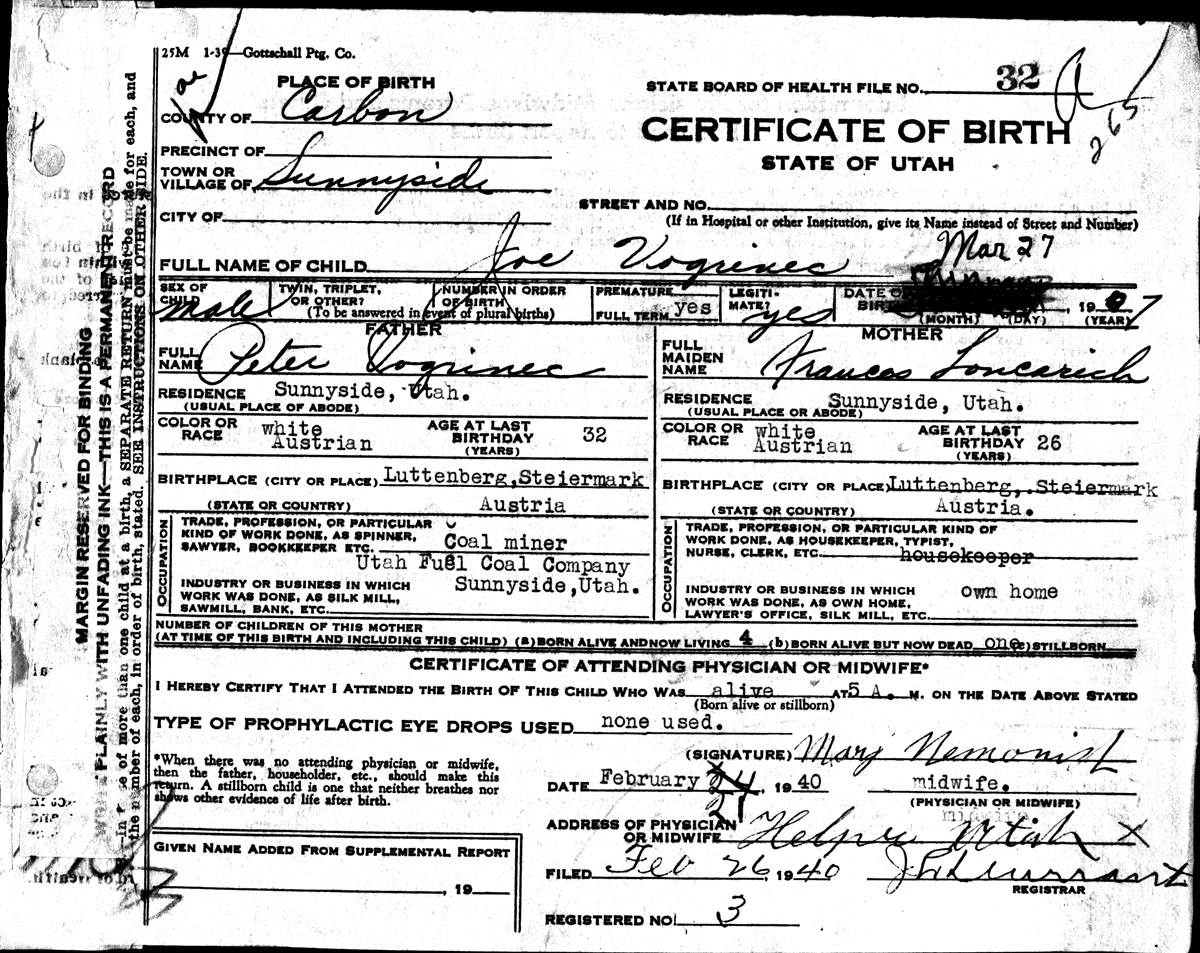 25M 1-39—Gottschall Ptg. Co.
PLACE OF BIRTH
COUNTY OF Carbon
PRECINCT OF
TOWN OR
VILLAGE OF Sunnyside
CITY OF
STATE BOARD OF HEALTH FILE NO. 32
265
CERTIFICATE OF BIRTH
STATE OF UTAH
STREET AND NO.
(If in Hospital or other Institution, give its Name instead of Street and Number)
FULL NAME OF CHILD Joe Vogrinec
Mar 27
SEX OF
CHILD male
TWIN, TRIPLET,
OR OTHER?
NUMBER IN ORDER
OF BIRTH
(To be answered in event of plural births)
PREMATURE
FULL TERM yes
LEGITI-
MATE? yes
DATE OF
BIRTH 19 07
(MONTH) (DAY) (YEAR)
FATHER
FULL
NAME Peter Vogrinec
RESIDENCE Sunnyside, Utah.
(USUAL PLACE OF ABODE)
COLOR OR
RACE white
Austrian
AGE AT LAST
BIRTHDAY 32
(YEARS)
BIRTHPLACE (CITY OR PLACE) Luttenberg,Steiermark
(STATE OR COUNTRY) Austria
OCCUPATION
TRADE, PROFESSION, OR PARTICULAR
KIND OF WORK DONE, AS SPINNER,
SAWYER, BOOKKEEPER ETC. Coal miner
Utah Fuel Coal Company
INDUSTRY OR BUSINESS IN WHICH Sunnyside,Utah.
WORK WAS DONE, AS SILK MILL,
SAWMILL, BANK, ETC.
MOTHER
FULL
MAIDEN
NAME Frances Loncarich
RESIDENCE Sunnyside, Utah.
(USUAL PLACE OR ABODE)
COLOR OR
RACE white
Austrian
AGE AT LAST
BIRTHDAY 26
(YEARS)
BIRTHPLACE (CITY OR PLACE) Luttenberg,.Steiermark
(STATE OR COUNTRY) Austria.
OCCUPATION
TRADE, PROFESSION, OR PARTICULAR KIND OF
WORK DONE, AS HOUSEKEEPER, TYPIST,
NURSE, CLERK, ETC. housekeeper
INDUSTRY OR BUSINESS IN WHICH own home
WORK WAS DONE, AS OWN HOME,
LAWYER'S OFFICE, SILK MILL, ETC.
NUMBER OF CHILDREN OF THIS MOTHER
(AT TIME OF THIS BIRTH AND INCLUDING THIS CHILD) (a) BORN ALIVE AND NOW LIVING 4 (b) BORN ALIVE BUT NOW DEAD one (c) STILLBORN
CERTIFICATE OF ATTENDING PHYSICIAN OR MIDWIFE*
I HEREBY CERTIFY THAT I ATTENDED THE BIRTH OF THIS CHILD WHO WAS alive AT 5 A. M. ON THE DATE ABOVE STATED
(Born alive or stillborn)
TYPE OF PROPHYLACTIC EYE DROPS USED none used.
*When there was no attending physician or midwife,
then the father, householder, etc., should make this
return. A stillborn child is one that neither breathes nor
shows other evidence of life after birth.
(SIGNATURE) Mary Nemonist
DATE February 24 21, 1940 midwife.
(PHYSICIAN OR MIDWIFE)
midwife.
ADDRESS OF PHYSICIAN
OR MIDWIFE Helper Utah X
FILED Feb 26, 1940
REGISTRAR
REGISTERED NO. 3
GIVEN NAME ADDED FROM SUPPLEMENTAL REPORT
, 19
MARGIN RESERVED FOR BINDING
PLAINLY WITH UNFADING INK—THIS IS A PERMANENT RECORD
of more than one child at a birth, a SEPARATE RETURN must be made for each, and
the number of each, in order of birth, stated. SEE INSTRUCTIONS ON OTHER SIDE.